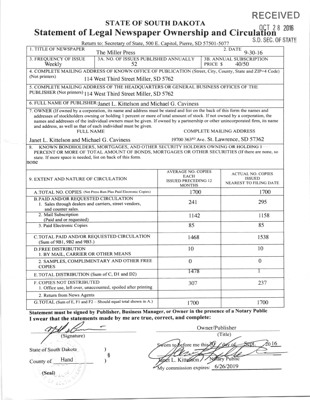 RECEIVED
OCT 28 2016
S.D. SEC. OF STATE
STATE OF SOUTH DAKOTA
Statement of Legal Newspaper Ownership and Circulation
Return to: Secretary of State, 500 E. Capitol, Pierre, SD 57501-5077
1. TITLE OF NEWSPAPER
The Miller Press
2. DATE
9-30-16
3. FREQUENCY OF ISSUE
Weekly
3A. NO. OF ISSUES PUBLISHED ANNUALLY
52
3B. ANNUAL SUBSCRIPTION
PRICE $ 40/50
4. COMPLETE MAILING ADDRESS OF KNOWN OFFICE OF PUBLICATION (Street, City, County, State and ZIP+4 Code)
(Not printers)
114 West Third Street Miller, SD 5762
5. COMPLETE MAILING ADDRESS OF THE HEADQUARTERS OR GENERAL BUSINESS OFFICES OF THE
PUBLISHER (Not printer) 114 West Third Street Miller, SD 5762
6. FULL NAME OF PUBLISHER Janet L. Kittelson and Michael G. Caviness
7. OWNER (If owned by a corporation, its name and address must be stated and list on the back of this form the names and
addresses of stockholders owning or holding 1 percent or more of total amount of stock. If not owned by a corporation, the
names and addresses of the individual owners must be given. If owned by a partnership or other unincorporated firm, its name
and address, as well as that of each individual must be given.
FULL NAME
COMPLETE MAILING ADDRESS
Janet L. Kittelson and Michael G. Caviness
Ave. St. Lawrence, SD 57362
8. KNOWN BONDHOLDERS, MORTGAGES, AND OTHER SECURITY HOLDERS OWNING OR HOLDING 1
PERCENT OR MORE OF TOTAL AMOUNT OF BONDS, MORTGAGES OR OTHER SECURITIES (If there are none, so
state. If more space is needed, list on back of this form.
NONE
9. EXTENT AND NATURE OF CIRCULATION
AVERAGE NO. COPIES
EACH
ISSUES PRECEDING 12
MONTHS
ACTUAL NO. COPIES
ISSUED
NEAREST TO FILING DATE
A. TOTAL NO. COPIES (Net Press Run-Plus Paid Electronic Copies)
1700
1700
B. PAID AND/OR REQUESTED CIRCULATION
1. Sales through dealers and carriers, street vendors,
and counter sales.
241
295
2. Mail Subscription
(Paid and or requested)
1142
1158
3. Paid Electronic Copies
85
85
C. TOTAL PAID AND/OR REQUESTED CIRCULATION
(Sum of 9B1, 9B2 and 9B3.)
1468
1538
D. FREE DISTRIBUTION
1. BY MAIL, CARRIER OR OTHER MEANS
10
10
2. SAMPLES, COMPLIMENTARY AND OTHER FREE
COPIES
0
0
E. TOTAL DISTRIBUTION (Sum of C, D1 and D2)
1478
F. COPIES NOT DISTRIBUTED
1. Office use, left over, unaccounted, spoiled after printing
307
237
2. Return from News Agents
G. TOTAL (Sum of E, F1 and F2 - Should equal total shown in A.)
1700
1700
Statement must be signed by Publisher, Business Manager, or Owner in the presence of a Notary Public
I swear that the statements made by me are true, correct, and complete:
(Signature)
Owner/Publisher
(Title)
State of South Dakota )
) §
County of: Hand )
(Seal)
Sworn to before me this 30 day of Sept. 2016
Janet L. Kittelson Notary Public
My commission expires: 6/26/2019